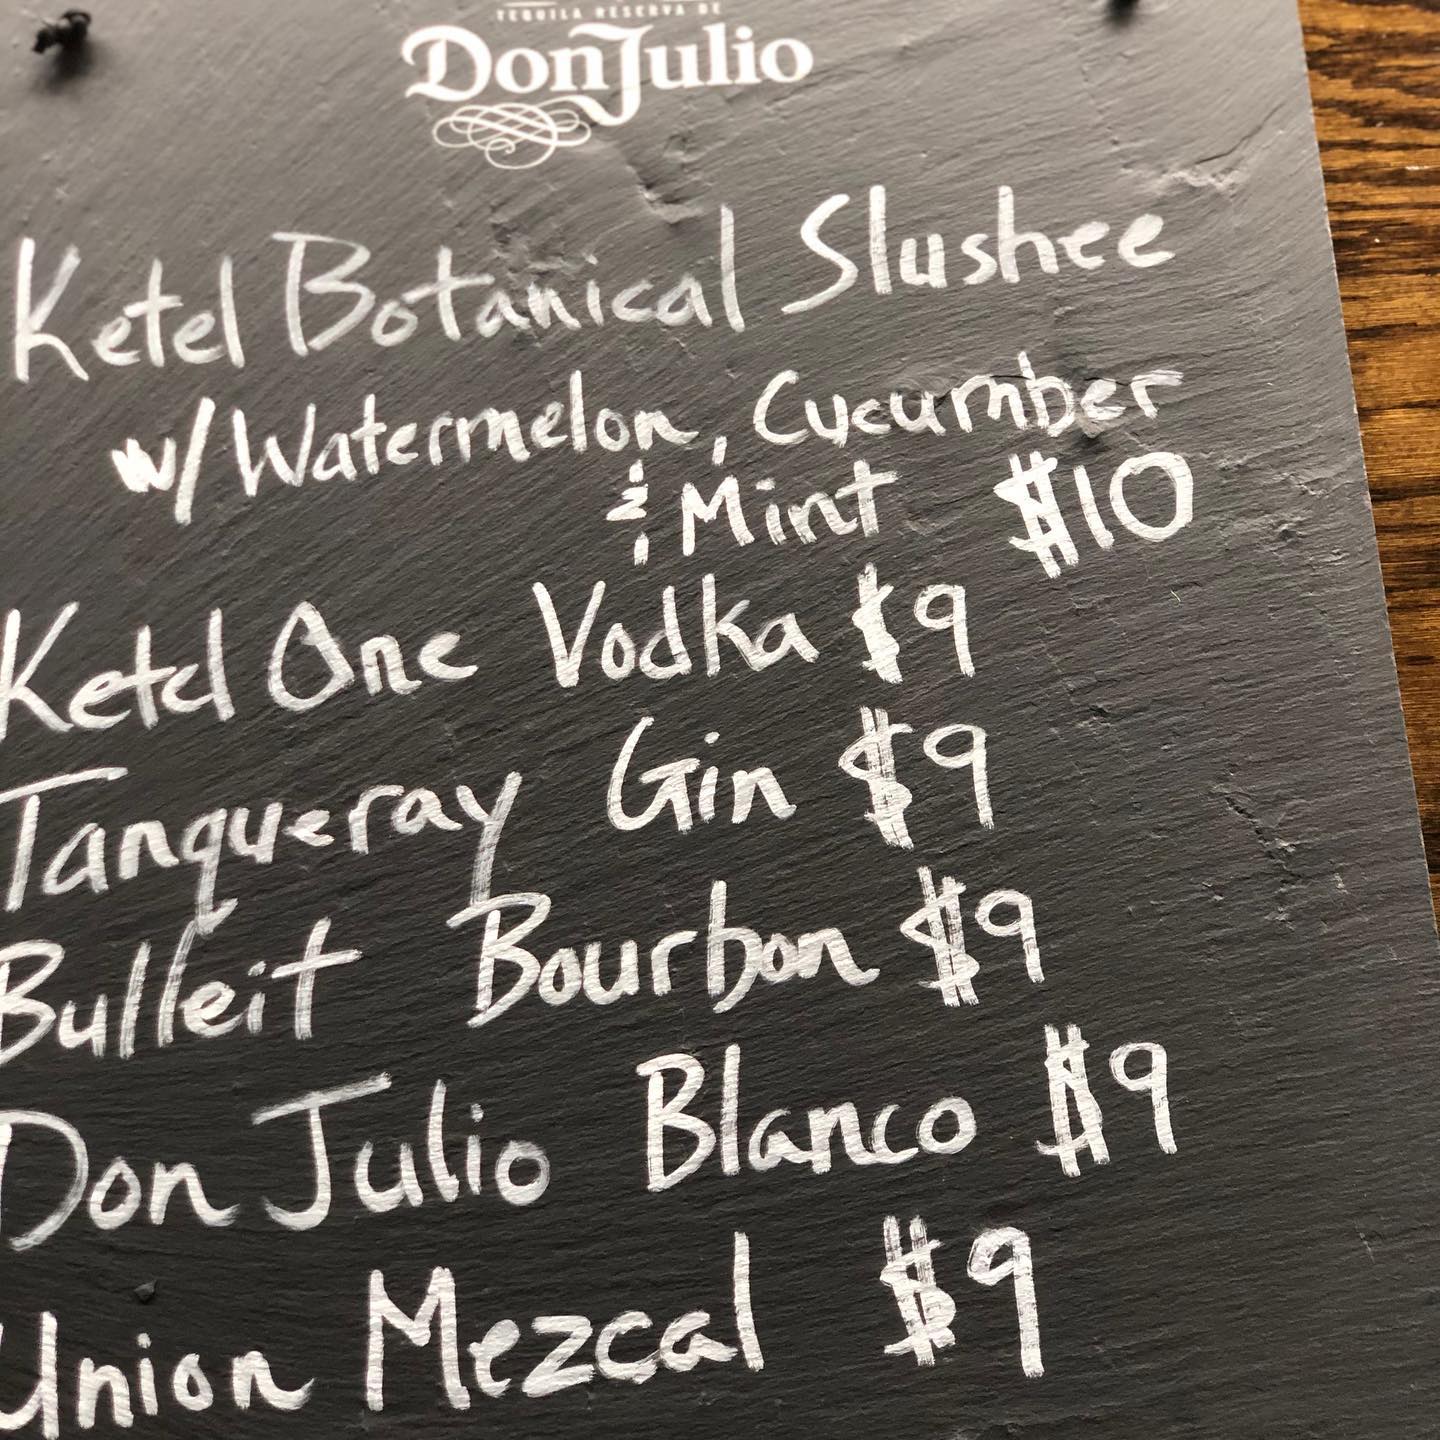 TEQUILA RESERVA DE
Don Julio
Ketel Botanical Slushee
w/ Watermelon, Cucumber
& Mint $10
Ketel One Vodka $9
Tanqueray Gin $9
Bulleit Bourbon $9
Don Julio Blanco $9
Union Mezcal $9